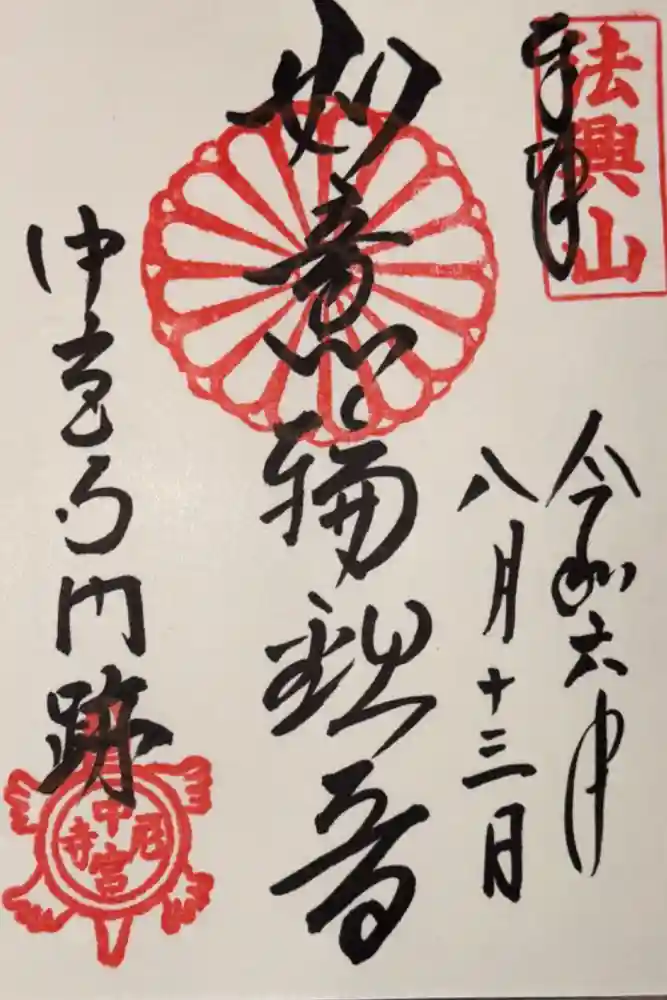 奉拝
法興山
令和六年
八月十三日
如意輪観音
中宮寺門跡
中宮尼寺